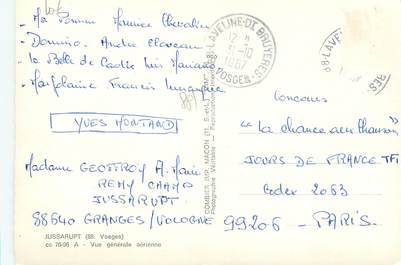 - Ma Pomme Maurice Chevalier
- Domino - André Claveau
- La Belle de Cadix Luis Mariano
- Marjolaine Francis Lemarque
YVES MONTAND
Madame GEOFFROY A. Marie
REMY CHAMP
JUSSARUPT
88640 GRANGES/VOLOGNE
JUSSARUPT (88. Vosges)
cc 76-96 A - Vue générale aérienne
COMBIER IMP. MACON
Photographie Véritable - Reproduction
88-LAVELINE-Dt BRUYERES
12 H
31-10
1987
VOSGES
88-LAVEL
RES-
Concours
"La chance aux Chansons"
JOURS DE FRANCE TF1
Cedex 2063
99206 - PARIS -